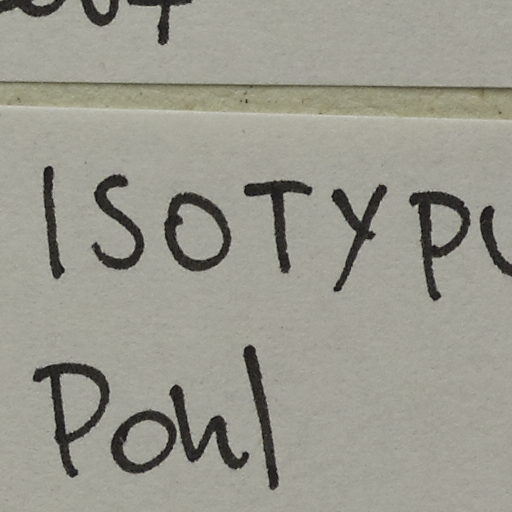 ISOTYPU
Pohl